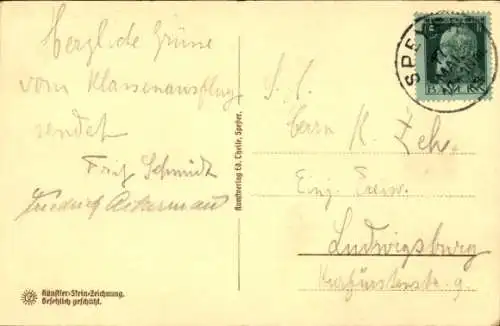 Herzliche Grüsse
vom Klassenausflug
sendet
Fritz Schmidt
Friedrich Ackermann
Künstler-Stein-Zeichnung.
Gesetzlich geschützt.
Kunstverlag Ed. Thelle, Speyer.
SPEY
Herrn K. Zeh,
Einj. Freiw.
Ludwigsburg
Kurfürstenstr. 9.